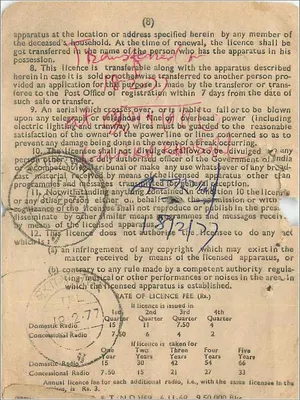 (8)
apparatus at the location or address specified herein by any member of
the deceased's household. At the time of renewal, the licence shall be
got transferred in the name of the person who has the apparatus in his
possession.
8. This licence is transferable along with the apparatus described
herein in case it is sold or when transferred to another person pro-
vided an application for the purpose is made by the transferor or trans-
feree to the Post Office of registration within 7 days from the date of
such sale or transfer.
9. An aerial which crosses over, or is liable to fall or to be blown
upon any overhead power (including
electric lighting and tramway) wires must be guarded to the reasonable
satisfaction of the owner of the power line or lines concerned so as to
prevent any damage being done in the event of a break occurring.
10. The licensee shall not divulge or allow to be divulged to any
person other than an authorised officer of the Government of India
or a competent tribunal or make any use whatsoever of any broad-
cast material received by means of licensed apparatus other than
programmes and messages
11. Notwithstanding anything in condition 10 the licensee
or any other person on behalf
of the licensee shall not reproduce or publish in the press
disseminate by other similar means messages received,
means of the licensed apparatus.
12. This licence does not authorise the licensee to do any act
which is:
(a) an infringement of any copyright which may exist in the
matter received by means of the licensed apparatus, or
(b) contrary to any rule made by a competent authority regula-
ting musical or other performances or noises in the area, in
which the licensed apparatus is established.
RATE OF LICENCE FEE (Rs.)
If licence is issued in
1st 2nd 3rd 4th
Quarter Quarter Quarter Quarter
Domestic Radio 15 11 7.50 4
Concessional Radio 6 4 2
If licence is taken for
One Two Three Four Five
Year Years Years Years Years
Domestic Radio 15 30 42 54
Concessional Radio 7.50 15 21 27 33
Annual licence fee for each additional radio, i.e., with the same licensee in the
is Rs. 3.
18/2/77
18.2.77